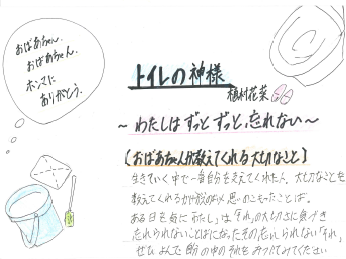 おばあちゃん.
おばあちゃん.
ホンマに
ありがとう.
トイレの神様
植村花菜
～わたしはずっとずっと、忘れない～
(おばあちゃんが教えてくれる大切なこと)
生きていく中で一番自分を支えてくれた人. 大切なことを
教えてくれるのが家族の思いのこもったことば.
ある日を境に「わたし」は「それ」の大切さに気づき
忘れられないことばになったその忘れられない「それ」
ぜひよんで自分の中のそれをみつけてみてください